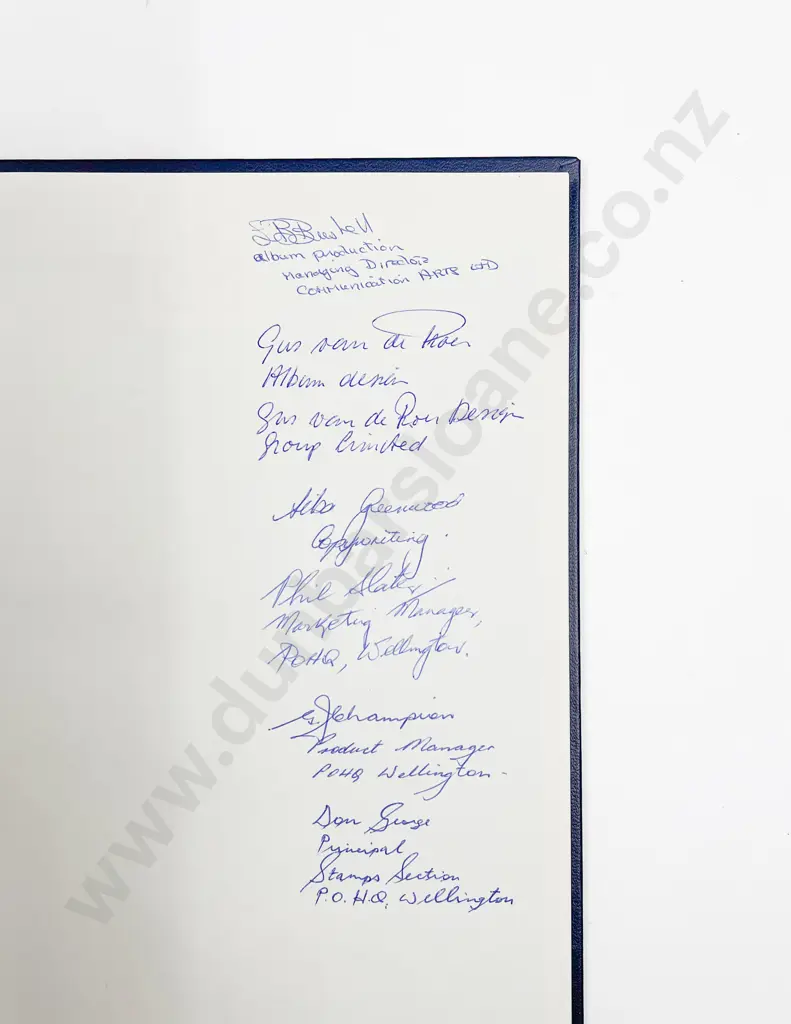 album production
Managing Director
Communication ARTS LTD
Gus van de Roer
Album design
Gus van de Roer Design
Group Limited
Greenwood
Copywriting.
Phil Slater
Marketing Manager,
POHQ, Wellington.
G. Champion
Product Manager
POHQ Wellington-
Don George
Principal
Stamps Section
P.O.H.Q, Wellington
www.dunbarsloane.co.nz